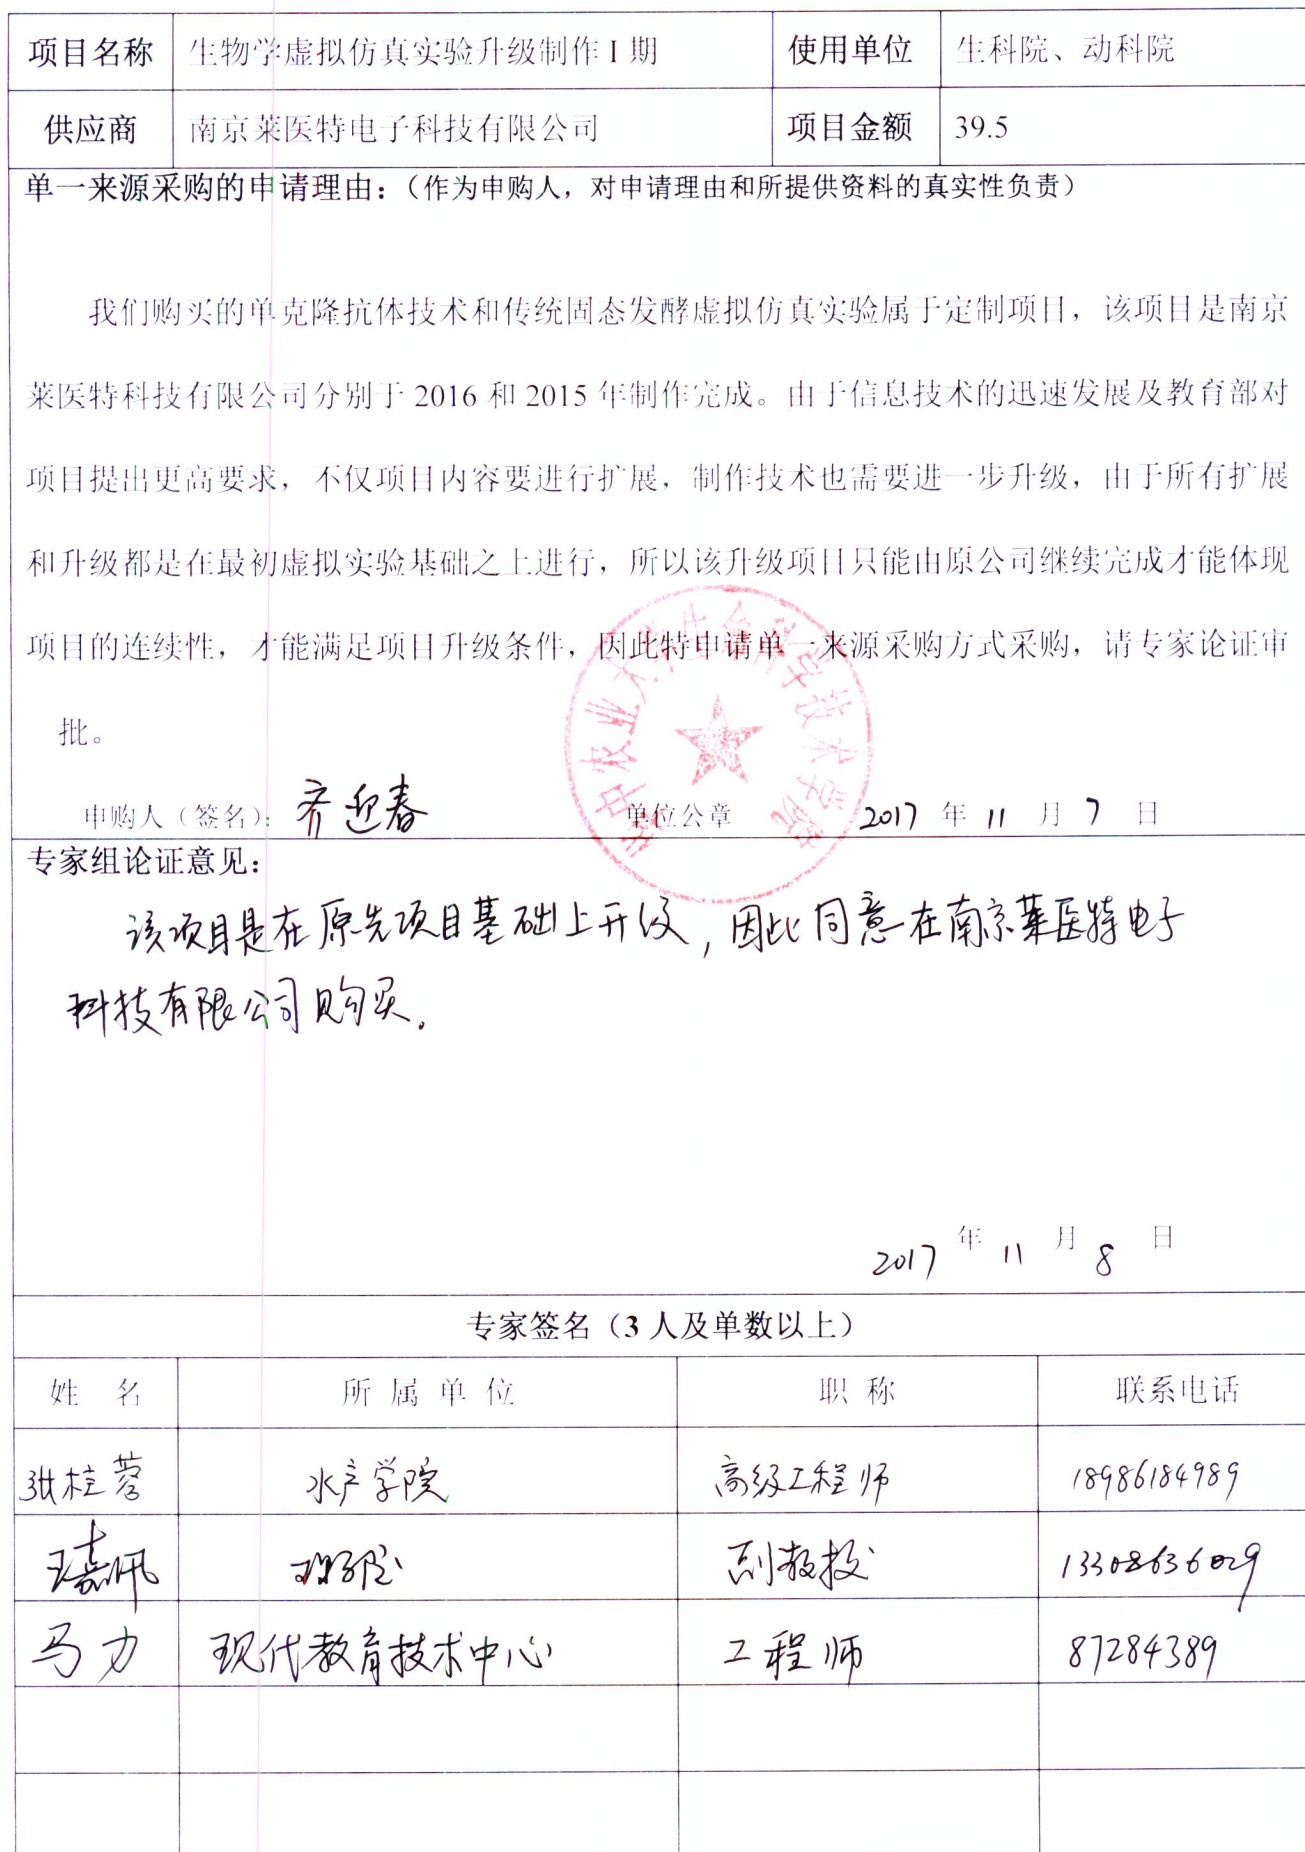 项目名称 生物学虚拟仿真实验升级制作 I 期 使用单位 生科院、动科院
供应商 南京莱医特电子科技有限公司 项目金额 39.5
单一来源采购的申请理由：（作为申购人，对申请理由和所提供资料的真实性负责）
我们购买的单克隆抗体技术和传统固态发酵虚拟仿真实验属于定制项目，该项目是南京
莱医特科技有限公司分别于 2016 和 2015 年制作完成。由于信息技术的迅速发展及教育部对
项目提出更高要求，不仅项目内容要进行扩展，制作技术也需要进一步升级，由于所有扩展
和升级都是在最初虚拟实验基础之上进行，所以该升级项目只能由原公司继续完成才能体现
项目的连续性，才能满足项目升级条件，因此特申请单一来源采购方式采购，请专家论证审
批。
华中农业大学生命科学技术学院
申购人（签名）：齐迎春 单位公章 2017 年 11 月 7 日
专家组论证意见：
该项目是在原先项目基础上升级，因此同意在南京莱医特电子
科技有限公司购买。
2017 年 11 月 8 日
专家签名（3 人及单数以上）
姓 名 所 属 单 位 职 称 联系电话
张桂蓉 水产学院 高级工程师 18986184989
王嘉佩 副教授 13308636029
马力 现代教育技术中心 工程师 87284389